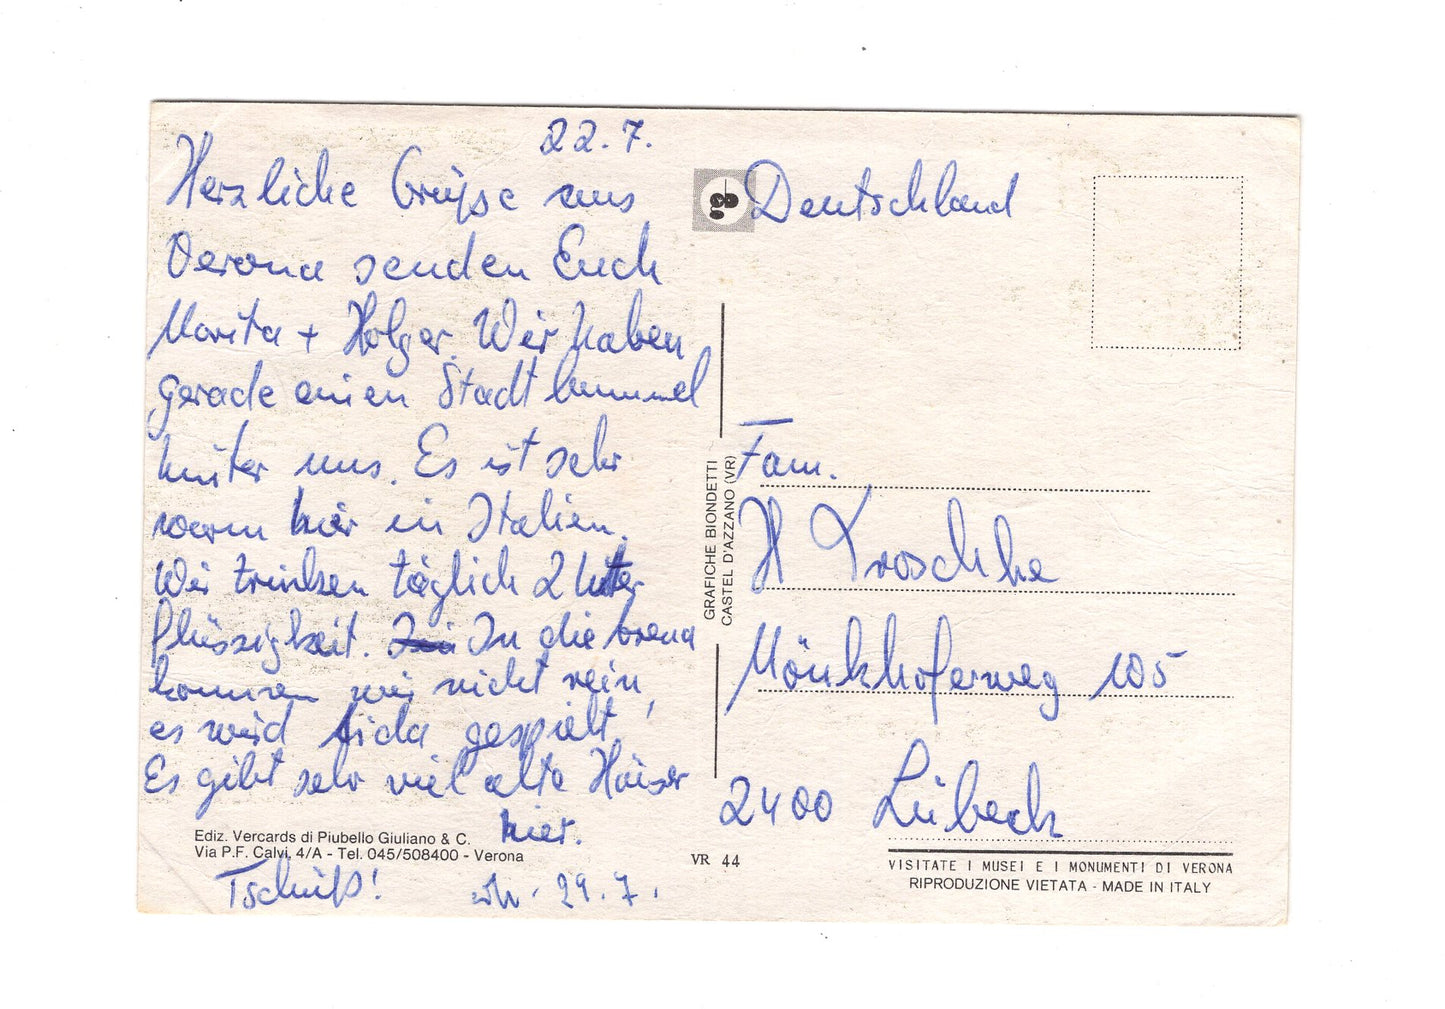 22.7.
Herzliche Grüsse aus
Verona senden Euch
Marita + Holger. Wir haben
gerade einen Stadtbummel
hinter uns. Es ist sehr
warm hier in Italien.
Wir trinken täglich 2 Liter
Flüssigkeit. In die Arena
kommen wir nicht rein,
es wird Aida gespielt.
Es gibt sehr viel alte Häuser
hier.
Tschüß!
29.7.
Ediz. Vercards di Piubello Giuliano & C.
Via P.F. Calvi, 4/A - Tel. 045/508400 - Verona
VR 44
GRAFICHE BIONDETTI
CASTEL D'AZZANO (VR)
Deutschland
Fam.
H Kroschke
Mönkhoferweg 105
2400 Lübeck
VISITATE I MUSEI E I MONUMENTI DI VERONA
RIPRODUZIONE VIETATA - MADE IN ITALY